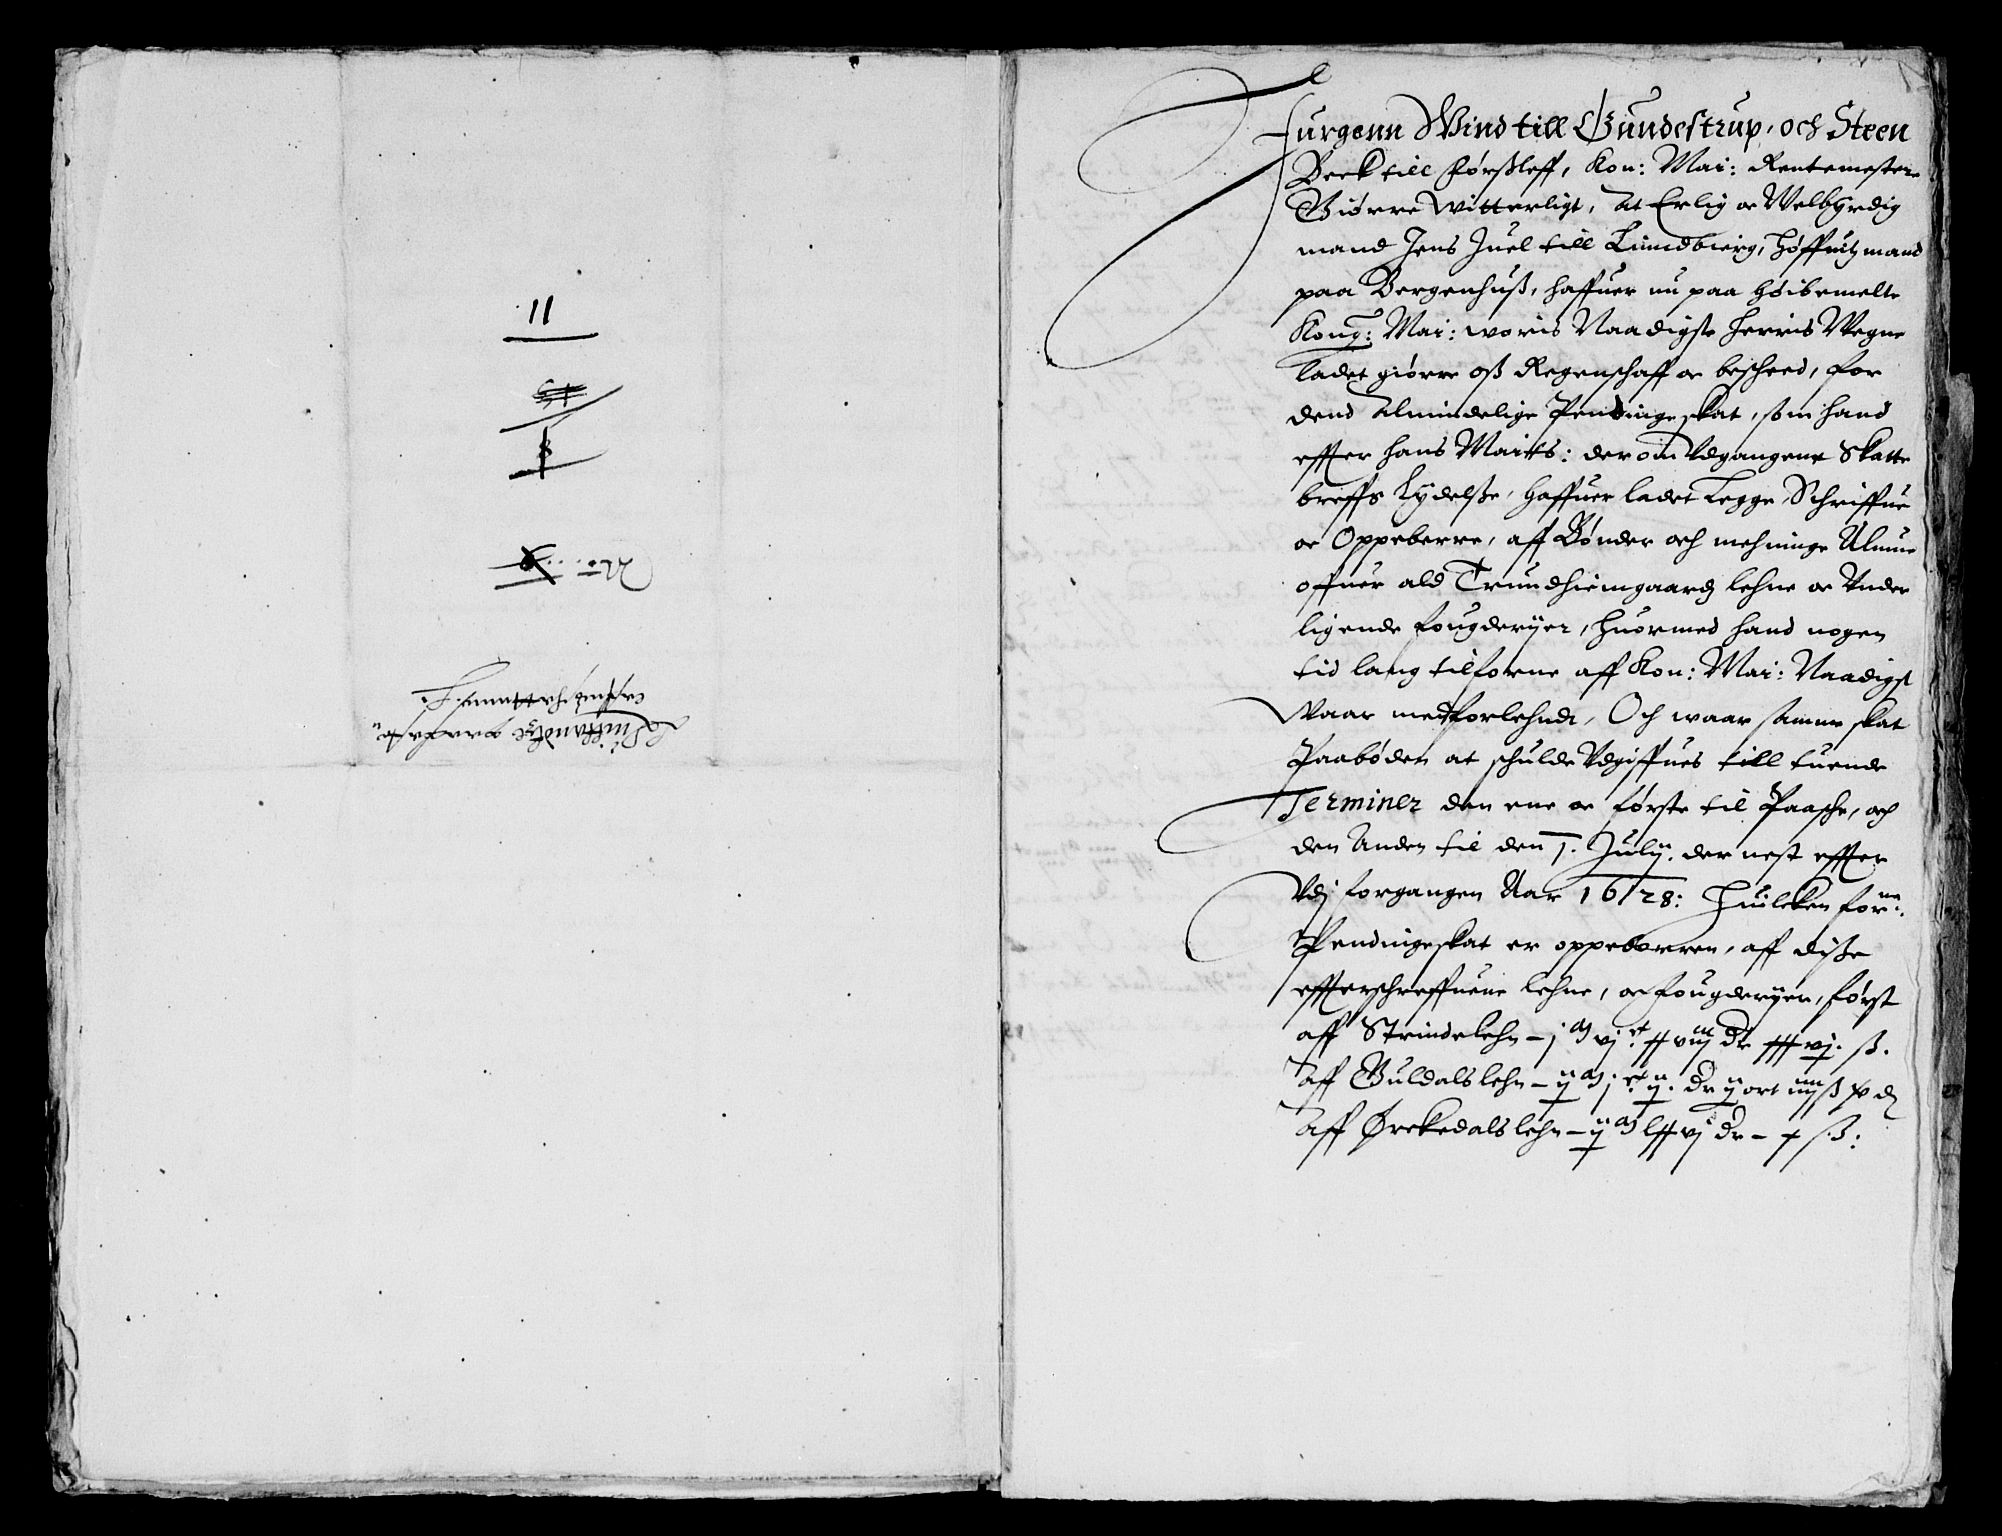 11
8
No: 9
Jurgenn Wind till Gundestrup, och Steen
Beck till Førßleff, Kon: Mai: Rentemestere
Giørre Witterligt, At Erlig oc Welbyrdig
mand Jens Juel till Lundbierg, Høffuitzmand
paa Bergenhuß, haffuer nu paa høibemelte
Kong: Mai: woris Naadigste Herris Wegne
ladet giørre oß Regenschaff oc bescheed, for
dend Almindelige Pendingeskat, som hand
effter hans Maitts: derom Udgangene Skatte
breffs Lydelße, haffuer ladet Legge, Schriffue
oc Oppeberre, aff Bønder och mehninge Almue
offuer ald Trundhiemgaardz lehne oc Under
ligende fougderijer, huormed hand nogen
tid lang tilforne aff Kon: Mai: Naadigst
Waar medforlehndt, Och waar samme skat
Paabøden at schulde Udgiffues till tuende
Terminer den ene oc første til Paasche, och
den Anden til den 1. Julij. der nest effter
Udj forgangen Aar 1628: Huilcken forne:
Pendingeskat er oppeborren, aff diße
effterschreffuene lehne, oc fougderijer, først
aff Strindelehn – j M vj C xx viij dr xxx vj. ß.
Aff Guldalslehn – ij M j C ij. dr ij ort iiij ß x d
Aff Ørckedalslehn – ij M lxx vj dr – x ß: